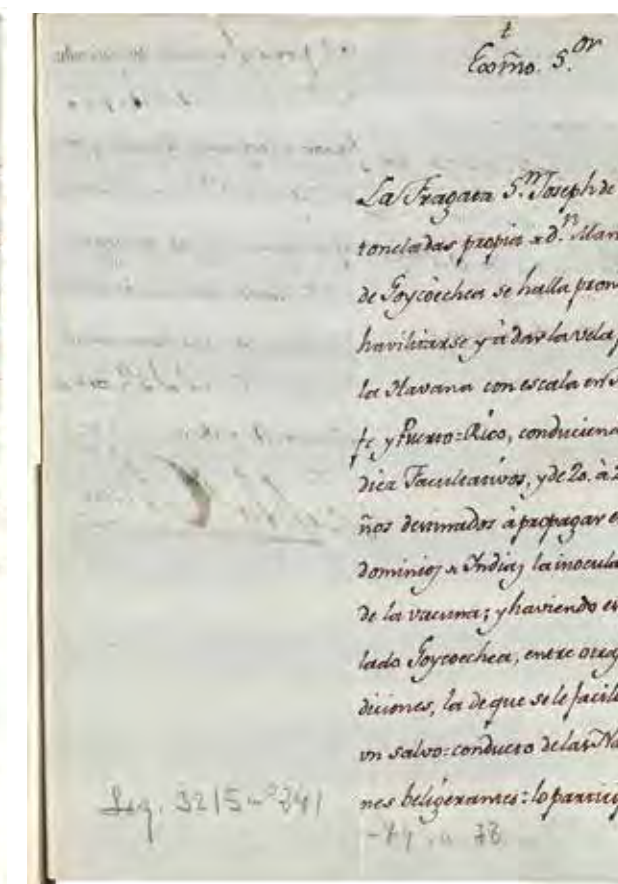 t
Exm̃o. S.or
La Fragata S.n Joseph de
toneladas propia a d.n Man
de Goycoechea se halla pron
havilitarse y à dar la vela
la Havana con escala en
fe y Puerto=Rico, conducien
diez Facultativos, y de 20. à 2
ños destinados à propagar e
dominios a Indias la inocula
de la vacuna; y haviendo es
lado Goycoechea, entre otras
diciones, la de que se le facili
un salvo=conducto de las Na
nes beligerantes: lo particip
Leg. 3215 nº 241
-74 a 78